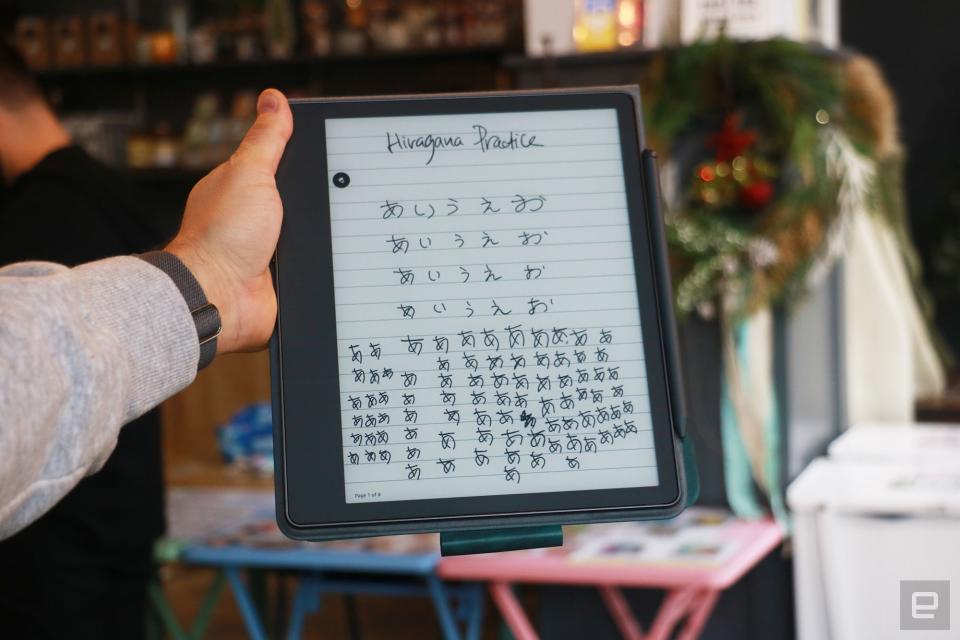 Hiragana Practice
あ い う え お
あ い う え お
あ い う え お
あ い う え お
ああ あ あ あ あ あ あ あ あ あ
あ あ あ あ あ あ あ あ
あああ あ あ あ あ あ あ あ あ あ あ
あああ あ あ あ あ あ あ あ あ あ あ
あああ あ あ あ あ あ あ あ あ あ
あああ あ あ あ あ あ あ あ あ あ あ
あああ あ あ あ あ あ あ
あ
Page 1 of 8
e